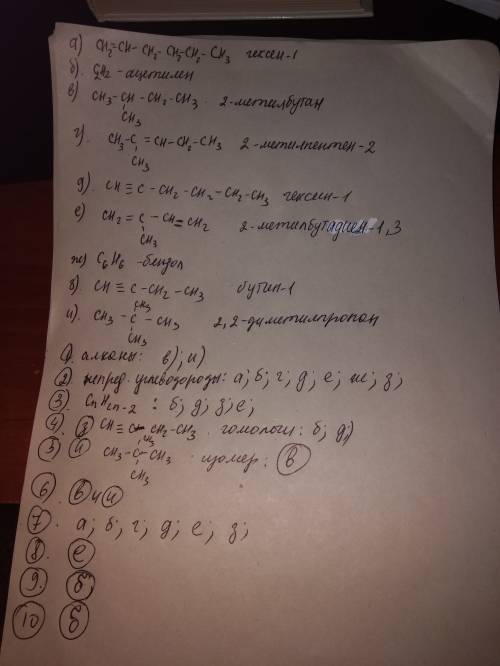 а) CH₂=CH-CH₂-CH₂-CH₂-CH₃ гексен-1
б) C₂H₂-ацетилен
в) CH₃-CH-CH₂-CH₃ 2-метилбутан
CH₃
г) CH₃-C=CH-CH₂-CH₃ 2-метилпентен-2
CH₃
д) CH≡C-CH₂-CH₂-CH₂-CH₃ гексин-1
е) CH₂=C-CH=CH₂ 2-метилбутадиен-1,3
CH₃
ж) C₆H₆-бензол
з) CH≡C-CH₂-CH₃ бутин-1
CH₃
и) CH₃-C-CH₃ 2,2-диметилпропан
CH₃
1. алканы: в); и)
2. непред. углеводороды: а; б; г; д; е; ж; з;
3. CnH₂n-2: б; д; з; е;
4. з CH≡C-CH₂-CH₃. гомологи: б; д)
CH₃
5) и CH₃-C-CH₃ изомер: в
CH₃
6. в и и
7. а; б; г; д; е; з;
8. е
9. б
10 б